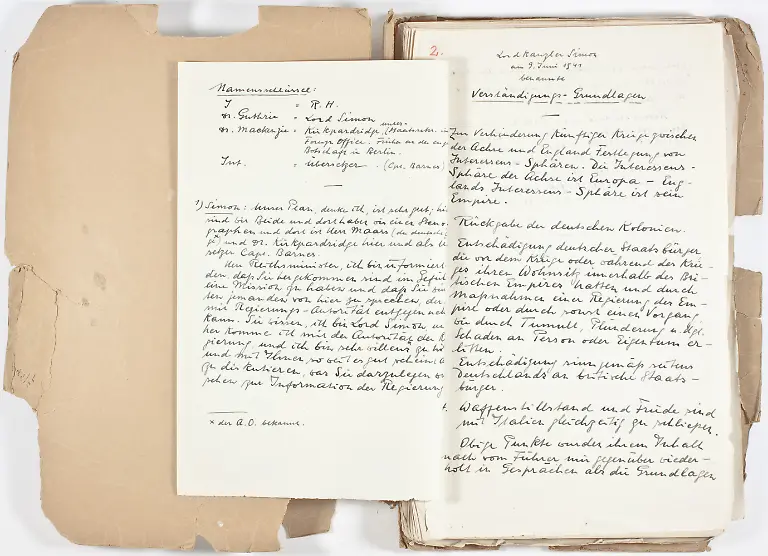 Namensschlüssel:
J = R. H.
Dr. Guthrie = Lord Simon
Dr. Mackenzie = Kirkpardridge, (Staatssekr. im
Foreign Office. Früher an der engl.
Botschaft in Berlin.
Int. = Übersetzer (Cpt. Barnes)
1) Simon: Unser Plan, denke ich, ist sehr gut; hier
sind wir Beide und dort haben wir einen Steno-
graphen und dort ist Herr Maass (der deutsche
) und Dr. Kirkpardridge hier und als Über-
setzer Capt. Barnes.
Herr Reichsminister, ich bin informiert
den, daß Sie hergekommen sind im Gefühl
eine Mission zu haben und daß Sie
jemanden von hier zu sprechen, der
mit Regierungs-Autorität entgegen
kann. Sie wissen, ich bin Lord Simon
her komme ich mit der Autorität der R
gierung und ich bin sehr willens zu
und mit Ihnen, so weit es gut scheint
zu diskutieren, was Sie darzulegen
schen zur Information der Regierung
x der A.O. bekannt.
2.
Lordkanzler Simon
am 9. Juni 1941
benannte
Verständigungs-Grundlagen
Zur Verhinderung künftiger Kriege zwischen
der Achse und England Festlegung von
Interessens-Sphären. Die Interessens-
Sphäre der Achse ist Europa – Eng-
lands Interessens-Sphäre ist sein
Empire.
Rückgabe der deutschen Kolonien.
Entschädigung deutscher Staatsbürger
die vor dem Kriege oder während des Krie-
ges ihren Wohnsitz innerhalb des Bri-
tischen Empires hatten und durch
Maßnahmen einer Regierung des Em-
pire oder durch sonst einen Vorgang
wie durch Tumult, Plünderung u. dgl.
Schaden an Person oder Eigentum er-
litten.
Entschädigung sinngemäß seitens
Deutschlands an britische Staats-
bürger.
4. Waffenstillstand und Friede sind
mit Italien gleichzeitig zu schließen.
Obige Punkte wurden ihrem Inhalt
nach vom Führer mir gegenüber wieder-
holt in Gesprächen als die Grundlagen